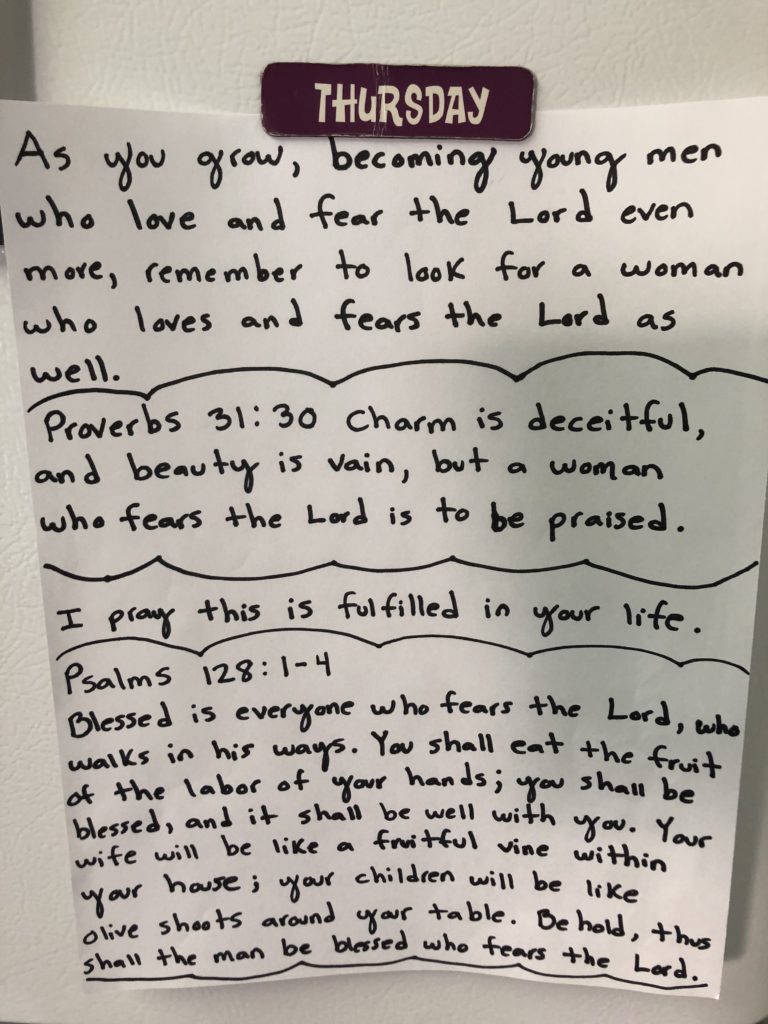 THURSDAY
As you grow, becoming young men
who love and fear the Lord even
more, remember to look for a woman
who loves and fears the Lord as
well.
Proverbs 31:30 Charm is deceitful,
and beauty is vain, but a woman
who fears the Lord is to be praised.
I pray this is fulfilled in your life.
Psalms 128:1-4
Blessed is everyone who fears the Lord, who
walks in his ways. You shall eat the fruit
of the labor of your hands; you shall be
blessed, and it shall be well with you. Your
wife will be like a fruitful vine within
your house; your children will be like
olive shoots around your table. Behold, thus
shall the man be blessed who fears the Lord.